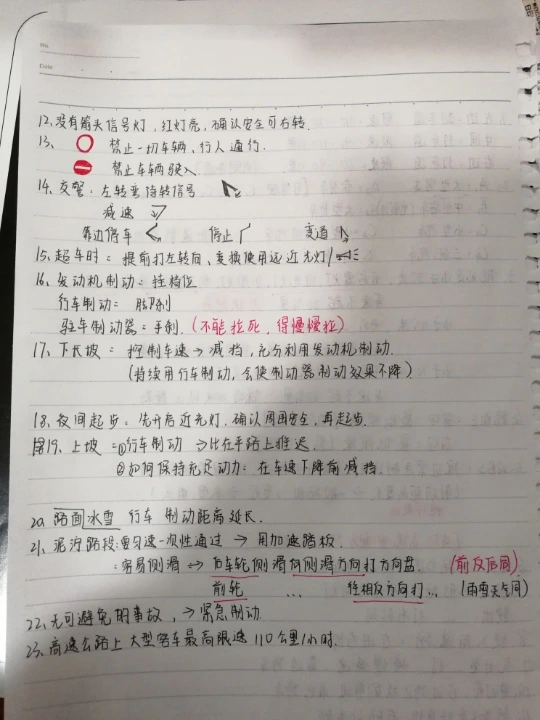 No.
Date.
12.没有箭头信号灯,红灯亮,确认安全可右转.
13. 禁止一切车辆、行人通行.
禁止车辆驶入
14.交警:左转弯待转信号
减速
靠边停车 停止 变道
15.超车时:提前打左转向,变换使用远近光灯/
16.发动机制动:挂档位
行车制动:脚刹
驻车制动器:手刹.(不能拉死,得慢慢拉)
17.下长坡:控制车速→减挡,充分利用发动机制动.
(持续用行车制动,会使制动器制动效果不降)
18.夜间起步:先开启近光灯,确认周围安全,再起步.
19.上坡:①行车制动→比在平路上推迟.
②如何保持充足动力:在车速下降前减挡.
20.路面冰雪 行车 制动距离延长.
21.泥泞路段:要匀速一次性通过→用加速踏板.
:容易侧滑↔后车轮侧滑向侧滑方向打方向盘. (前反后同)
前轮 ... 往相反方向打... (雨雪天气同)
22.无可避免的事故,→紧急制动.
23.高速公路上大型客车最高限速110公里/小时.